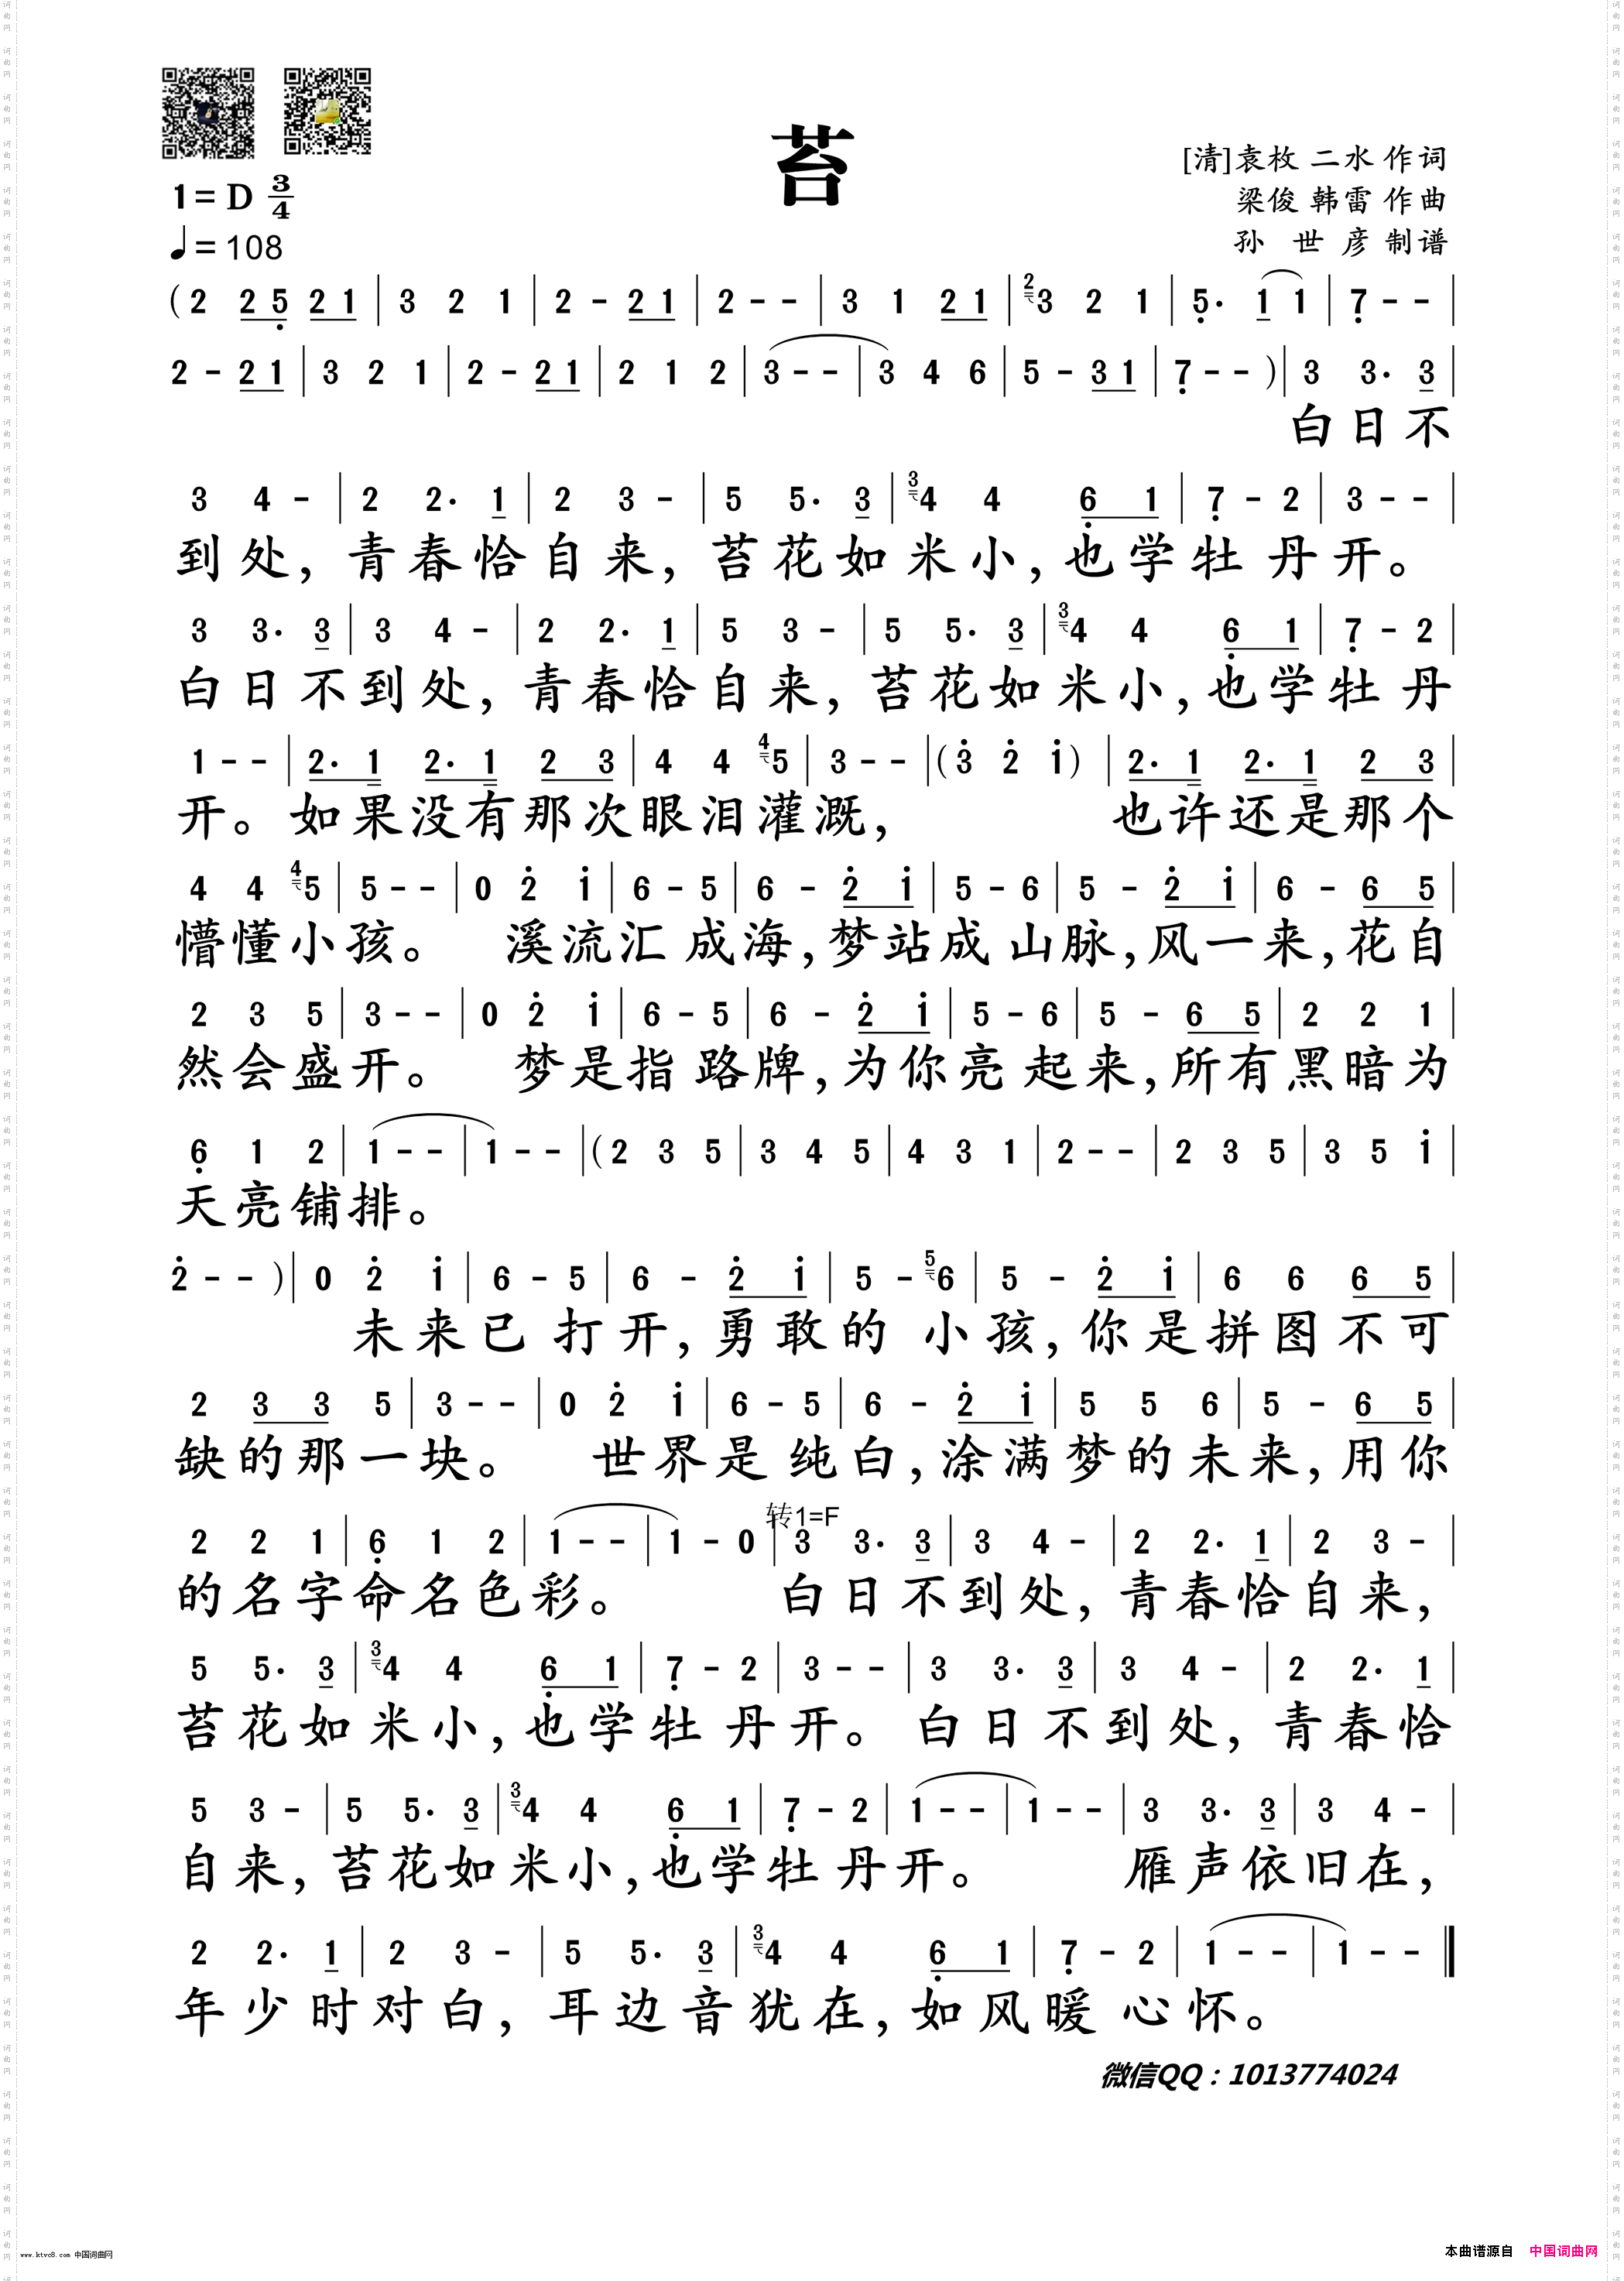 苔
[清]袁枚 二水 作词
梁俊 韩雷 作曲
孙 世 彦 制谱
1= D 3/4
♩= 108
(2 2 5 2 1 | 3 2 1 | 2 - 2 1 | 2 - - | 3 1 2 1 | 2 3 2 1 | 5· 1 1 | 7 - - |
2 - 2 1 | 3 2 1 | 2 - 2 1 | 2 1 2 | 3 - - | 3 4 6 | 5 - 3 1 | 7 - - ) | 3 3· 3 |
白日不
3 4 - | 2 2· 1 | 2 3 - | 5 5· 3 | 3 4 4 6 1 | 7 - 2 | 3 - - |
到处,青春恰自来,苔花如米小,也学牡丹开。
3 3· 3 | 3 4 - | 2 2· 1 | 5 3 - | 5 5· 3 | 3 4 4 6 1 | 7 - 2 |
白日不到处,青春恰自来,苔花如米小,也学牡丹
1 - - | 2· 1 2· 1 2 3 | 4 4 4 5 | 3 - - | (3 2 1) | 2· 1 2· 1 2 3 |
开。如果没有那次眼泪灌溉, 也许还是那个
4 4 4 5 | 5 - - | 0 2 1 | 6 - 5 | 6 - 2 1 | 5 - 6 | 5 - 2 1 | 6 - 6 5 |
懵懂小孩。 溪流汇成海,梦站成山脉,风一来,花自
2 3 5 | 3 - - | 0 2 1 | 6 - 5 | 6 - 2 1 | 5 - 6 | 5 - 6 5 | 2 2 1 |
然会盛开。 梦是指路牌,为你亮起来,所有黑暗为
6 1 2 | 1 - - | 1 - - | (2 3 5 | 3 4 5 | 4 3 1 | 2 - - | 2 3 5 | 3 5 1 |
天亮铺排。
2 - - ) | 0 2 1 | 6 - 5 | 6 - 2 1 | 5 - 5 6 | 5 - 2 1 | 6 6 6 5 |
未来已打开,勇敢的小孩,你是拼图不可
2 3 3 5 | 3 - - | 0 2 1 | 6 - 5 | 6 - 2 1 | 5 5 6 | 5 - 6 5 |
缺的那一块。 世界是纯白,涂满梦的未来,用你
转1=F
2 2 1 | 6 1 2 | 1 - - | 1 - 0 | 3 3· 3 | 3 4 - | 2 2· 1 | 2 3 - |
的名字命名色彩。 白日不到处,青春恰自来,
5 5· 3 | 3 4 4 6 1 | 7 - 2 | 3 - - | 3 3· 3 | 3 4 - | 2 2· 1 |
苔花如米小,也学牡丹开。白日不到处,青春恰
5 3 - | 5 5· 3 | 3 4 4 6 1 | 7 - 2 | 1 - - | 1 - - | 3 3· 3 | 3 4 - |
自来,苔花如米小,也学牡丹开。 雁声依旧在,
2 2· 1 | 2 3 - | 5 5· 3 | 3 4 4 6 1 | 7 - 2 | 1 - - | 1 - - ‖
年少时对白,耳边音犹在,如风暖心怀。
微信QQ：1013774024
www.ktvc8.com 中国词曲网
本曲谱源自 中国词曲网